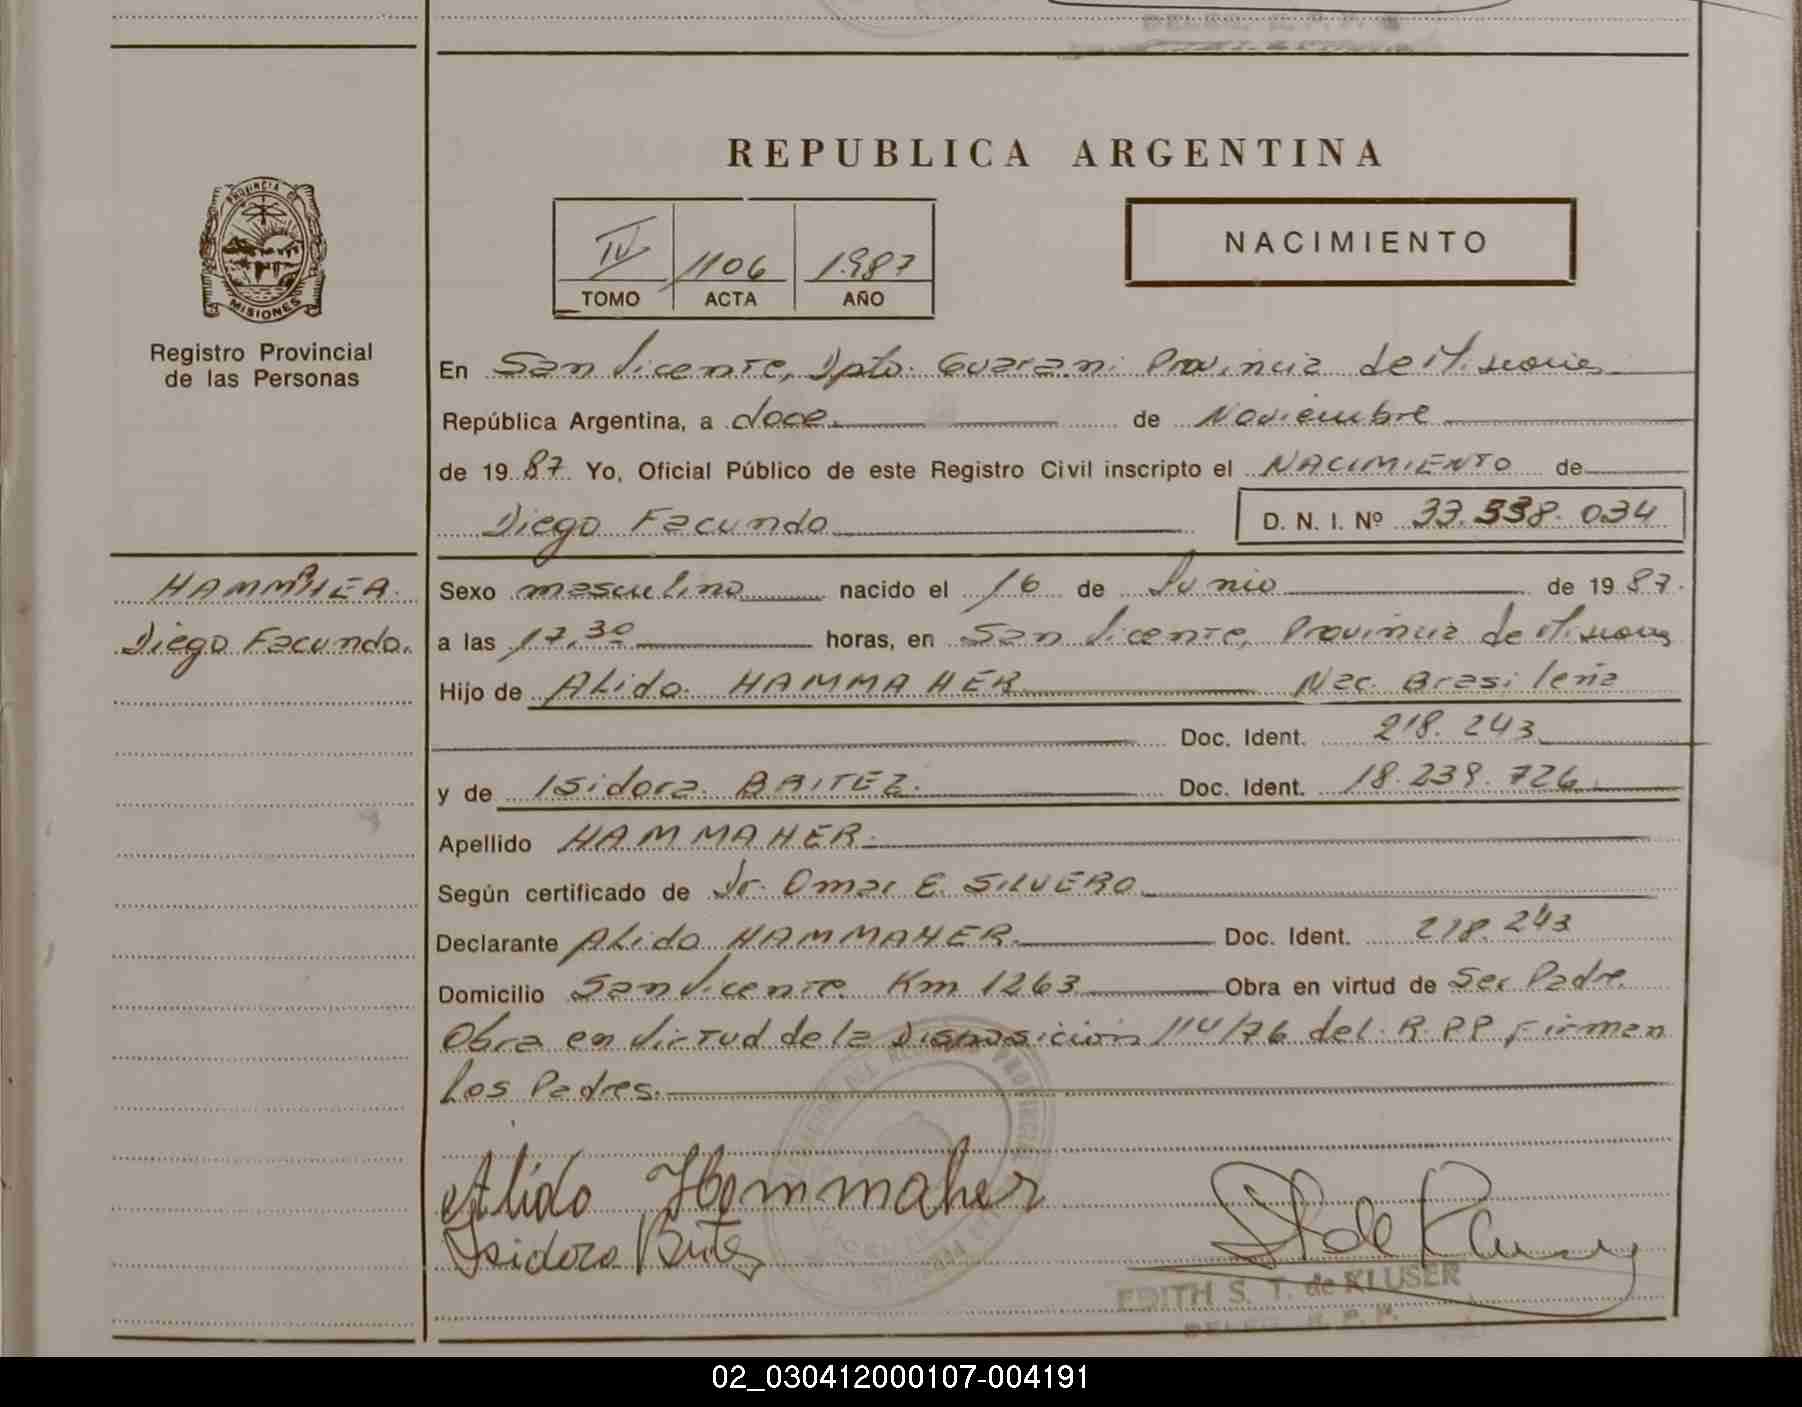 REPUBLICA ARGENTINA
IV 1106 1987
TOMO ACTA AÑO
NACIMIENTO
PROVINCIA DE
MISIONES
Registro Provincial
de las Personas
En San Vicente, Dpto. Guarani Provincia de Misiones
República Argentina, a doce de Noviembre
de 1987. Yo, Oficial Público de este Registro Civil inscripto el NACIMIENTO de
Diego Facundo D. N. I. Nº 33.538.034
HAMMAHER.
Diego Facundo.
Sexo masculino nacido el 16 de Junio de 1987.
a las 17,30 horas, en San Vicente, Provincia de Misiones
Hijo de Alido HAMMAHER Nac. Brasileña
Doc. Ident. 218.243
y de Isidora BRITEZ. Doc. Ident. 18.239.726
Apellido HAMMAHER.
Según certificado de Dr. Omar E. SILVERO
Declarante Alido HAMMAHER. Doc. Ident. 218.243
Domicilio San Vicente Km 1263 Obra en virtud de Ser Padre.
Obra en Virtud de la Disposición 114/76 del R.P.P. Firman
los Padres.
Alido Hammaher
Isidora Britez
EDITH S. T. de KLUSER
DELEG. R. P. P.
02_030412000107-004191